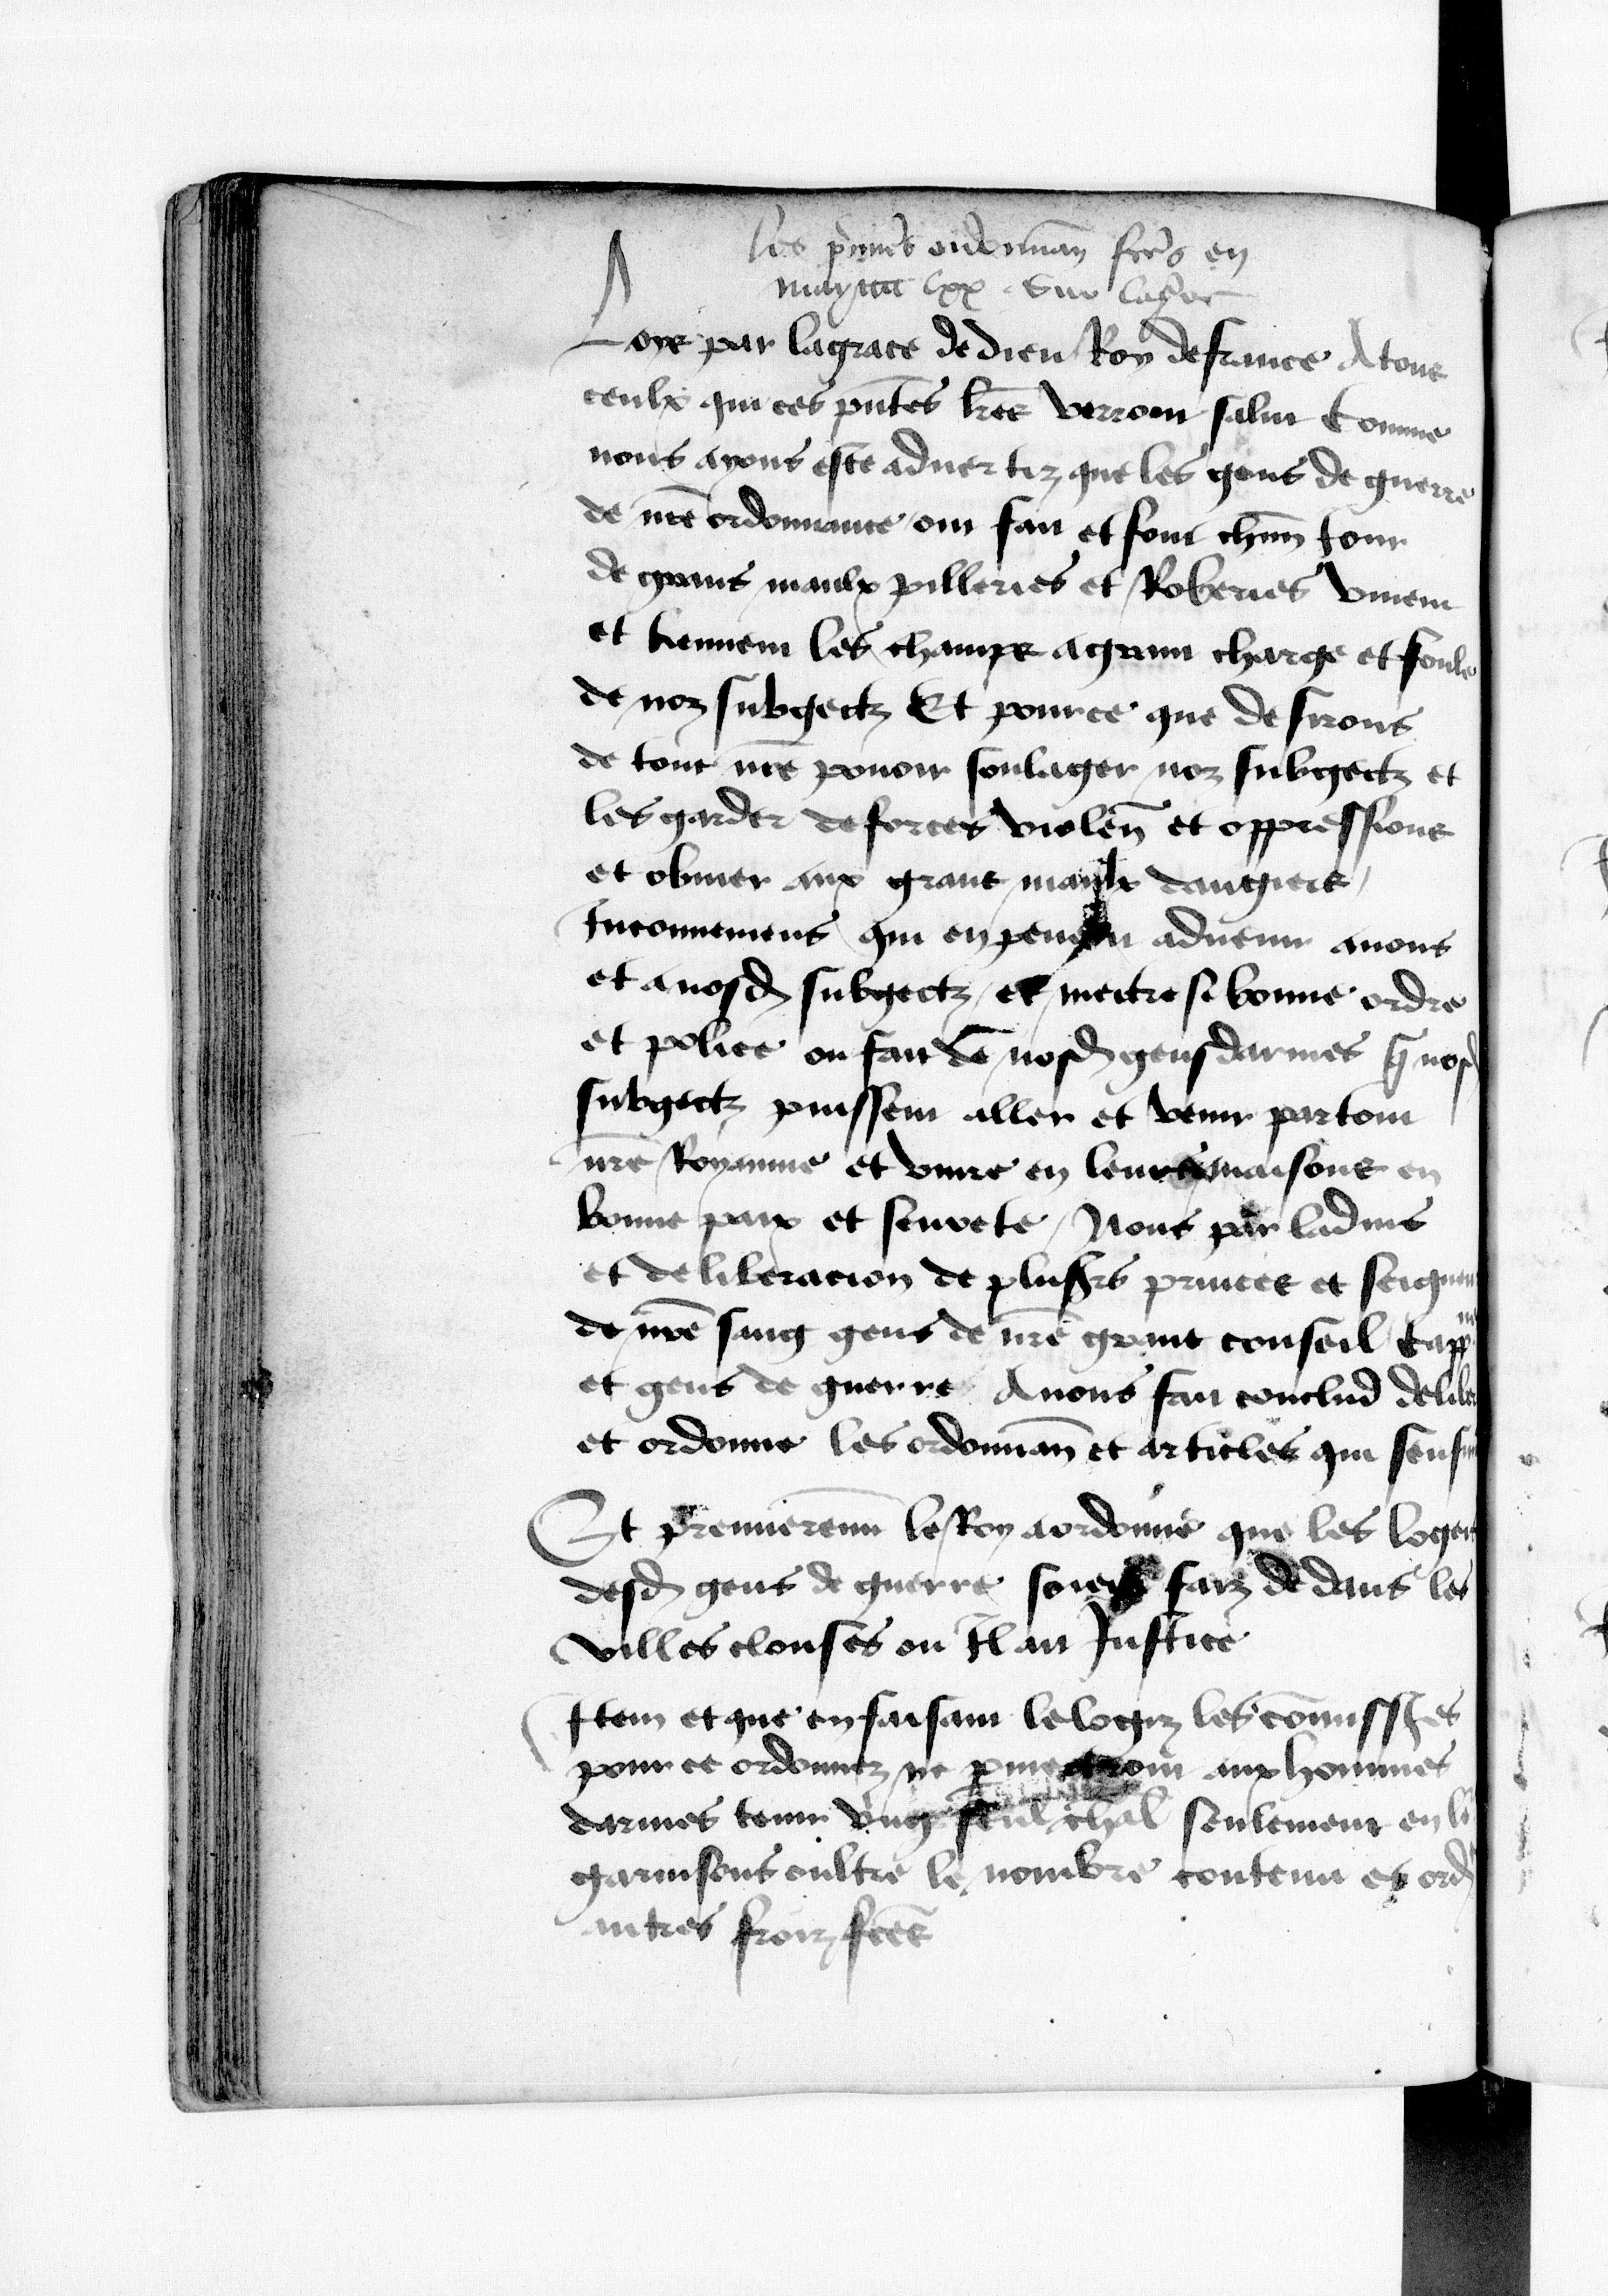 les pnt̃s ordonnan̄ fc̃es en
may lxx sur la guerre
Loys par lagrace de dieu Roy de france A tous
ceulx qui ces pñtes lr̃es verront salut Comme
nous ayons este aduertiz que les gens de guerre
de nr̃e ordonnance ont fait et font chũn Jour
de grans maulx pilleries et Roberies viuent
et tiennent les champs a grant charge et foule
de noz subgectz Et pource que desirons
de tout nr̃e pouoir soulager noz subgectz et
les garder de forces violen̄ et oppressions
et obuier aux grans maulx dangiers
Inconueniens qui en peuent aduenir a nous
et a nosd subgectz et mectre si bonne ordre
et police ou fait de nosd gensdarmes q̃ nosd
subgectz puissent aller et venir par tout
nr̃e Royaume et viure en leurs maisons en
bonne paix et seurete Nous par laduis
et deliberacion de plusr̃s princes et seigneurs
de nr̃e sang gens de nr̃e grant conseil Capp
et gens de guerre Auons fait conclud delibe
et ordonne les ordonnan̄ et articles qui sensuiu
Et premierem̃t le Roy a ordonne que les logeis
desd gens de guerre soient faiz dedans les
villes clouses ou Il ait Justice
Item et que en faisant le logiz les com̃iss̃es
pour ce ordonnez ne p̱mectront aux hommes
darmes tenir vng seul ch̃al seulement en l
garnisons oultre le nombre contenu es ord
autres froiz fc̃es